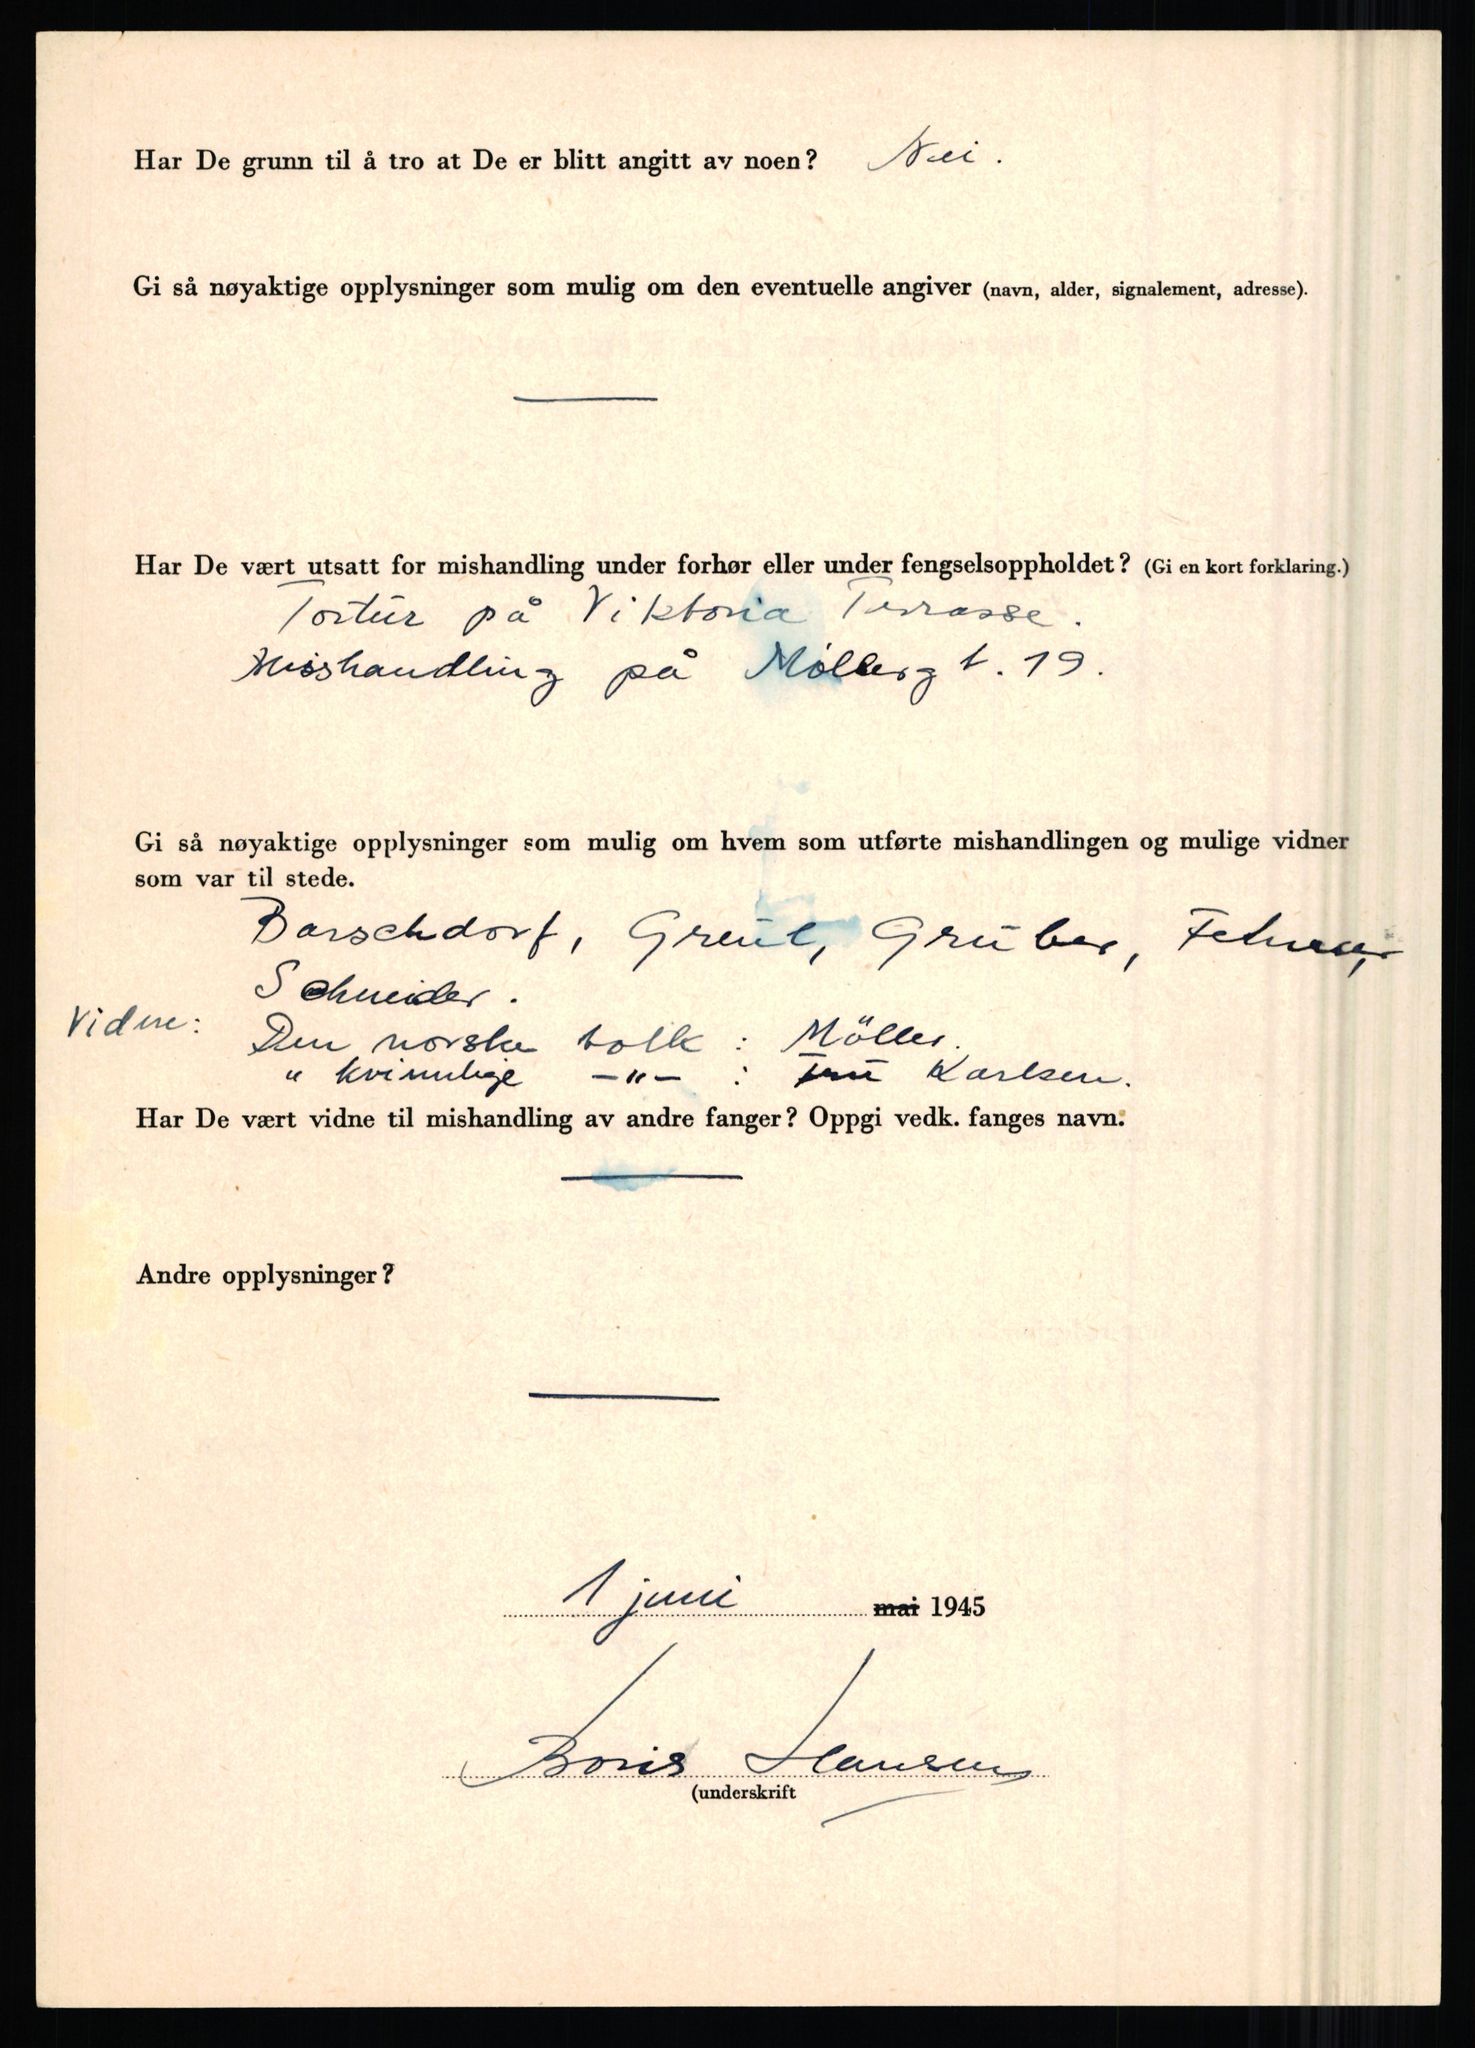 Har De grunn til å tro at De er blitt angitt av noen? Nei.
Gi så nøyaktige opplysninger som mulig om den eventuelle angiver (navn, alder, signalement, adresse).
Har De vært utsatt for mishandling under forhør eller under fengselsoppholdet? (Gi en kort forklaring.)
Tortur på Viktoria Terrasse.
Misshandling på Møllergt. 19.
Gi så nøyaktige opplysninger som mulig om hvem som utførte mishandlingen og mulige vidner
som var til stede.
Barschdorf, Greul, Grüber, Fehmer,
Schneider.
Vidne: Den norske tolk: Möller.
" kvinnlige -"-: Karlsen.
Har De vært vidne til mishandling av andre fanger? Oppgi vedk. fanges navn.
Andre opplysninger?
1 juni mai 1945
Boris Hansen
(underskrift